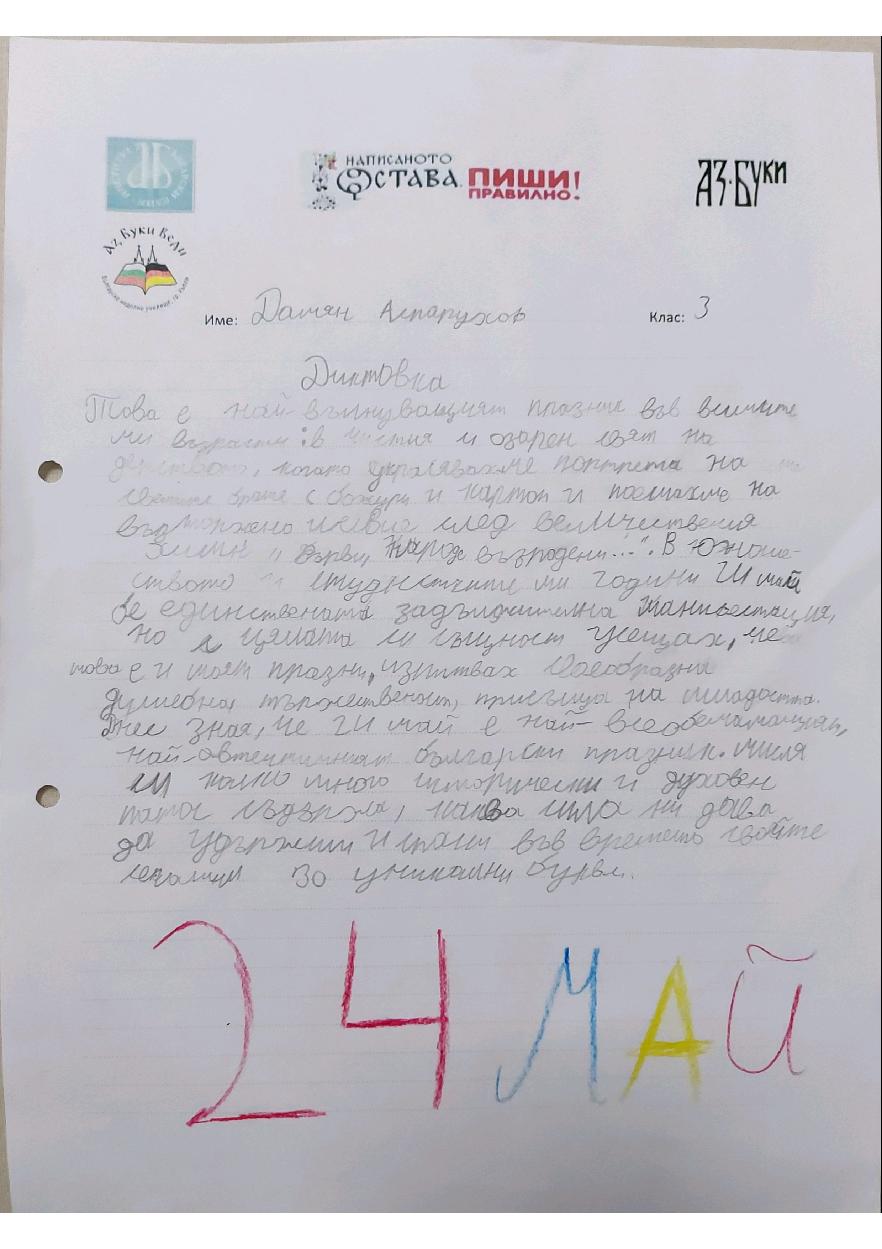 НАПИСАНОТО
ОСТАВА.
ПИШИ!
ПРАВИЛНО!
АЗ·БУКИ
Аз, Буки Веди
Име: Дамян Аспарухов Клас: 3
Диктовка
Това е най-вълнуващият празник във всичките
ми възрасти: в чистия и озарен свят на
детството, когато украсявахме портрета на
светите братя с божури и картон и поемахме на
тържено шевие след величествения
химн „Върви, народе възродени...". В юноше-
ството и студентските ми години 24 май
бе единствената задължителна манифестация,
но с цялата си същност усещах, че
това е и моят празник, изпитвах своеобразна
душевна тържественост, присъща на младостта.
Днес зная, че 24 май е най-всеобемащият,
най-автентичният български празник. Мисля
си колко много исторически и духовен
патос съдържа, каква сила ни дава
да удържим и спасим във времето своите
уникални букви.
24 МАЙ